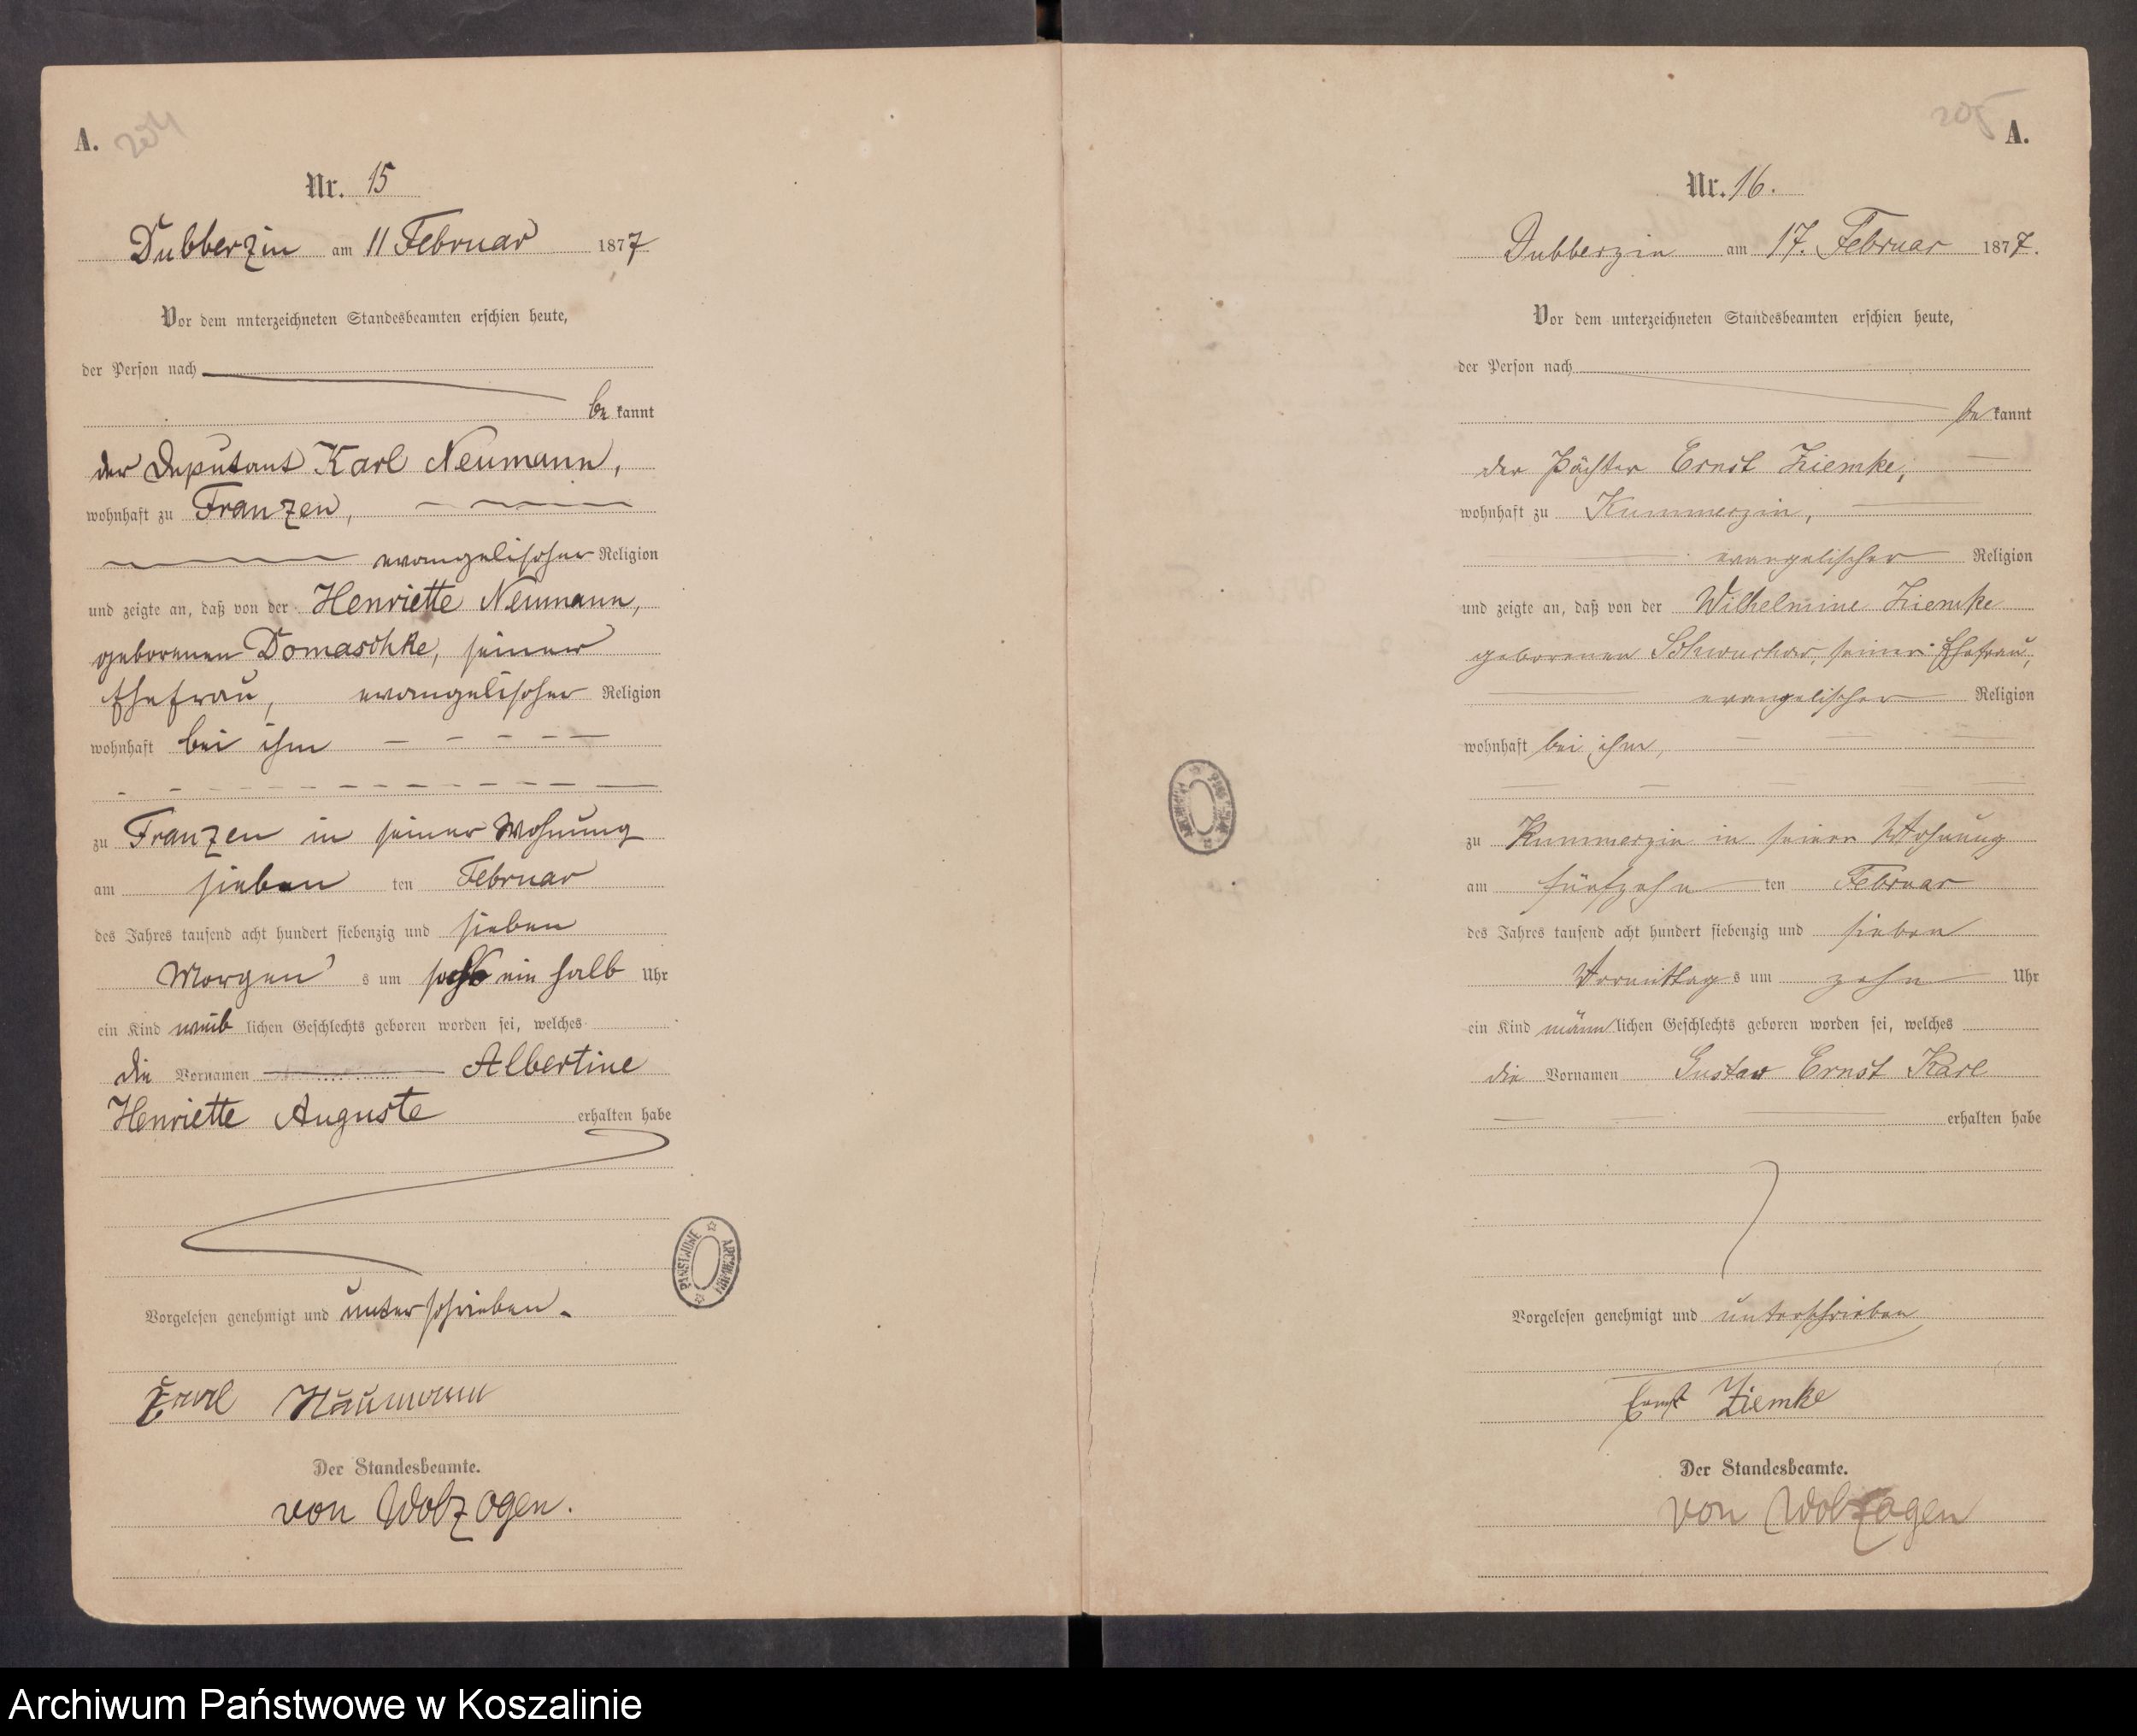 A. 204
Nr. 15
Dubberzin am 11 Februar 1877
Vor dem unterzeichneten Standesbeamten erschien heute,
der Person nach
be kannt
der Deputant Karl Neumann,
wohnhaft zu Franzen,
evangelischer Religion
und zeigte an, daß von der Henriette Neumann,
geborenen Domaschke, seiner
Ehefrau, evangelischer Religion
wohnhaft bei ihm
zu Franzen in seiner Wohnung
am sieben ten Februar
des Jahres tausend acht hundert siebenzig und sieben
Morgen s um ein halb Uhr
ein Kind weib lichen Geschlechts geboren worden sei, welches
die Vornamen Albertine
Henriette Auguste erhalten habe
Vorgelesen genehmigt und unterschrieben.
Karl Naumann
Der Standesbeamte.
von Wolzogen.
PAŃSTWOWE ARCHIWUM
205 A.
Nr. 16.
Dubberzin am 17. Februar 1877.
Vor dem unterzeichneten Standesbeamten erschien heute,
der Person nach
be kannt
der Pächter Ernst Ziemke,
wohnhaft zu Kummerzin,
evangelischer Religion
und zeigte an, daß von der Wilhelmine Ziemke
geborenen Schwuchow, seiner Ehefrau,
evangelischer Religion
wohnhaft bei ihm,
zu Kummerzin in seiner Wohnung
am fünfzehn ten Februar
des Jahres tausend acht hundert siebenzig und sieben
Vormittag s um zehn Uhr
ein Kind männ lichen Geschlechts geboren worden sei, welches
die Vornamen Gustav Ernst Karl
erhalten habe
Vorgelesen genehmigt und unterschrieben
Ernst Ziemke
Der Standesbeamte.
von Wolzogen
Archiwum Państwowe w Koszalinie